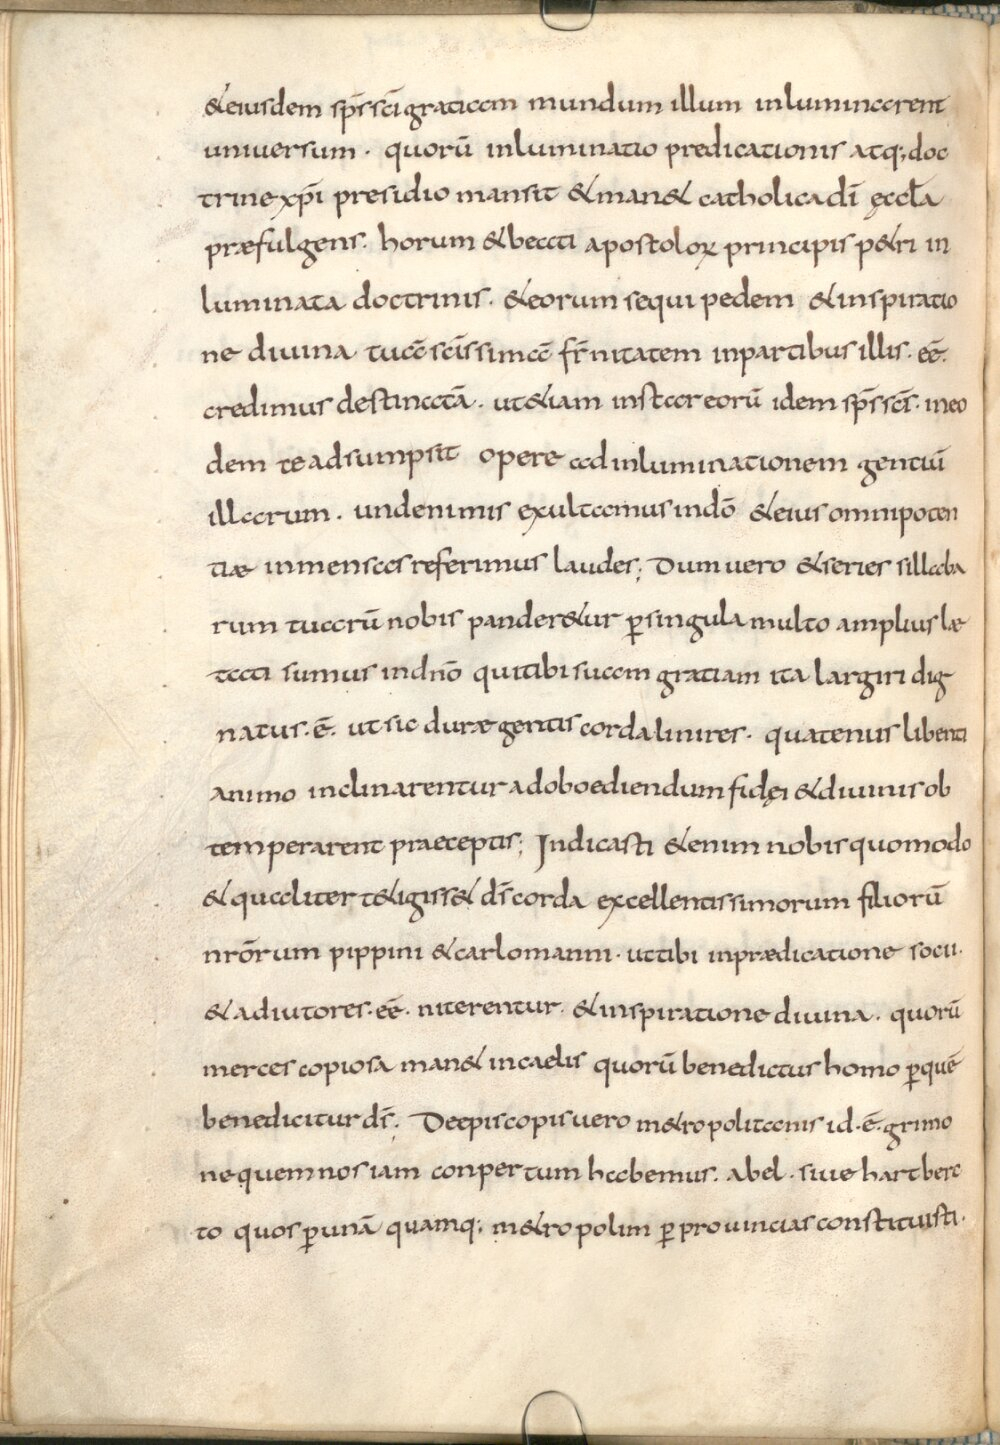 &eiusdem sp̄s sc̄i gratiam mundum illum inluminarent
uniuersum · quorū inluminatio predicationis atq; doc
trine xp̄i presidio mansit & man& catholica dī ęccl̄a
præfulgens · horum & beati apostoloꝝ principis p&ri in
luminata doctrinis · & eorum sequi pedem & inspiratio
ne diuina tuā sc̄issimā fr̄nitatem inpartibus illis · eē ·
credimus destinatā · ut &iam instar eorū idem sp̄s sc̄s · in eo
dem te adsumpsit opere ad inluminationem gentiū
illarum · unde nimis exultamus in dō & eius omnipoten
tiæ inmensas referimus laudes; Dum uero & series sillaba
rum tuarū nobis pander&ur ꝑ singula multo amplius læ
tati sumus in dn̄o qui tibi suam gratiam ita largiri dig
natus · ē · ut sic duræ gentis corda linires · quatenus libenti
animo inclinarentur ad oboediendum fidęi & diuinis ob
temperarent praeceptis; Indicasti &enim nobis quomodo
& qualiter t&igiss& d̄s corda excellentissimorum filiorū
nrōrum pippini & carlomanni · ut tibi in prædicatione socii ·
& adiutores · eē · niterentur · & inspiratione diuina · quorū
merces copiosa man& in caelis quorū benedictus homo ꝑ quē
benedicitur d̄s; De episcopis uero m&ropolitanis id · ē · grimo
ne quem nos iam conpertum habemus · abel · siue hartberc
to quos ꝑ unā quamq; m&ropolim ꝑ prouincias constituisti ·